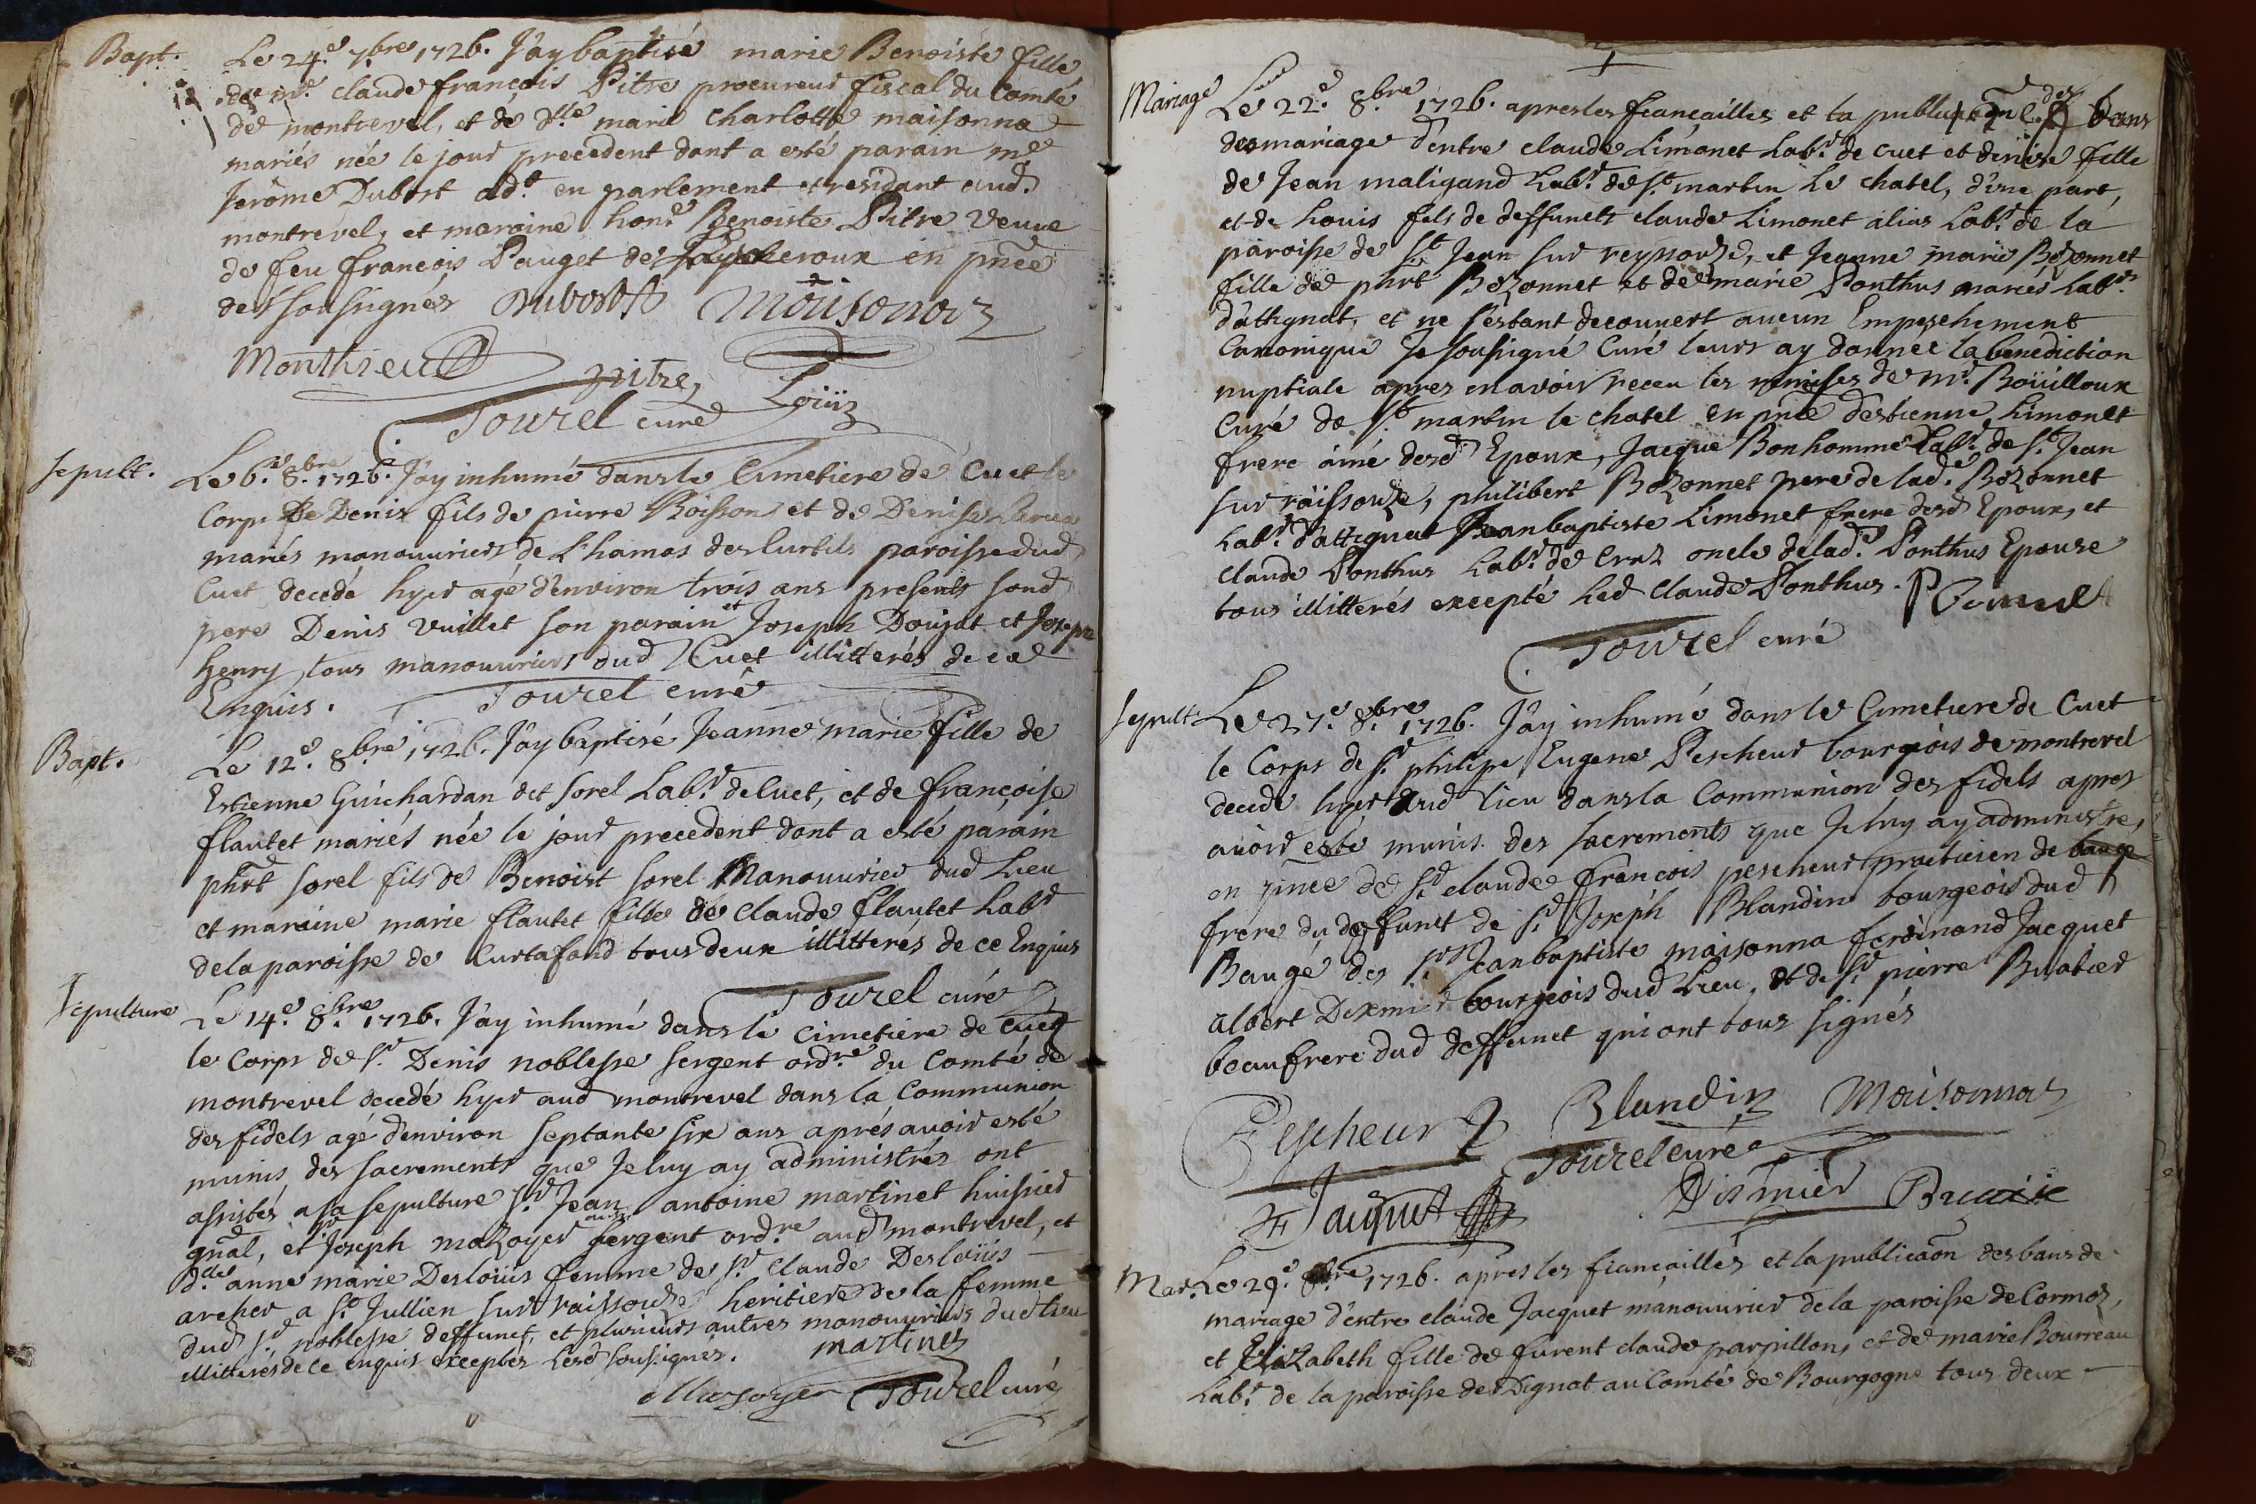 Bapt. Le 24.e 7.bre 1726. J'ay baptisé marie Benoiste fille
de m.e claude françois Pitre procureur fiscal du Comté
de montrevel, et de d.lle marie Charlotte maisonna
mariés née le jour precedent dont a esté parain m.e
Jerôme Dubost ad.t en parlement et residant aud.
montrevel, et maraine hon.e Benoiste Pitre veuve
de feu françois Pauget de en pnce
des soussignés Dubost Maisonnaz
Monthieu pitre, Loüiz
Tourel curé
Sepult. Le 6.e 8.bre 1726. J'ay inhumé dans le Cimetiere de Cuet le
Corps de Denis fils de pierre Boisson et de Denise
mariés manouuriers de L'hamas des Curtils paroisse dud
Cuet decedé hyer agé d'environ trois ans presents sond
pere Denis Vuillet son parain et Joseph Doujat et Joseph
henry tous manouuriers dud Cuet illitterés de ce
Enquis. Tourel curé
Bapt. Le 12.e 8.bre 1726. J'ay baptisé Jeanne marie fille de
Estienne Guichardan det sorel Lab.r de Cuet, et de françoise
flautet mariés née le jour precedent dont a esté parain
phbt sorel fils de Benoist sorel Manouurier dud Lieu
et maraine marie flautet fille de Claude flautet Lab.r
de la paroisse de Curtafond tous deux illitterés de ce Enquis
Tourel curé
Sepulture Le 14.e 8.bre 1726. J'ay inhumé dans le cimetiere de Cuet
le Corps de s.r Denis noblesse sergent ord.re du Comté de
montrevel decedé hyer aud montrevel dans la Communion
des fidels agé d'environ septante six ans aprés avoir esté
munis des sacrements que Je luy ay administrés ont
assistés a sa sepulture s.r Jean antoine martinet huissier
gnal, et s.r Joseph mazoyer aussi sergent ord.re aud montrevel, et
d.lle anne marie Desloüis femme de s.r Claude Desloüis
archer a s.t Jullien sur raissouze heritiere de la femme
dud s.r noblesse deffunct, et plusieurs autres manouuriers dud lieu
illitterés de ce enquis exceptés Lesd soussignez. martinet
Mazoyer Tourel curé
Mariage Le 22.e 8.bre 1726. apres les fiançailles et la des bans
de mariage d'entre claude Limonet Lab.r de Cuet et denise fille
de Jean maligand Lab.r de s.t martin le chatel, d'une part,
et de Louis fils de deffunct claude Limonet alias Lab.r de la
paroisse de s.t Jean sur reyssouze, et Jeanne marie Bozonnet
fille de phbt Bozonnet et de marie Ponthus mariés Lab.rs
d'attignat, et ne s'estant decouvert aucun Empeschement
Canonique Je soussigné Curé leurs ay donnee la benediction
nuptiale apres en avoir receu les remises de m.r Boüilloux
Curé de s.t martin le chatel en pnce d'estienne Limonet
frere ainé desd Epoux, Jacque Bonhomme Lab.r de s.t Jean
sur raïssouze, philibert Bozonnet pere de lad.e Bozonnet
Lab.r d'attignat Jean baptiste Limonet frere desd Epoux, et
claude Ponthus Lab.r de Craz oncle de lad.e Ponthus Epouse
tous illitterés excepté Led Claude Ponthus.
Tourel curé
Sepult. Le 27.e 8.bre 1726. J'ay inhumé dans le Cimetiere de Cuet
le Corps de s.r philipe Eugene Pescheur bourgeois de montrevel
decedé hyer aud lieu dans la Communion des fidels apres
avoir esté munis des sacrements que Je luy ay administré,
en pnce de s.r claude françois pescheur praticien de baugé
frere du deffunct de s.r Joseph Blandin bourgeois dud
Baugé des s.rs Jean baptiste maisonna ferdinand Jacquet
albert Dixmier bourgeois dud Lieu, et de s.r pierre Buatier
beaufrere dud deffunct qui ont tous signés
Pescheur Blandin Maisonnaz
Tourel curé
F Jaquet Dismier
Mar. Le 29.e 8.bre 1726. apres les fiançailles et la publicaôn des bans de
mariage d'entre claude Jacquet manouurier de la paroisse de Cormoz,
et Elizabeth fille de furent claude parpillon, et de marie Bourreau
Lab.r de la paroisse de Dignat au Comté de Bourgogne tous deux